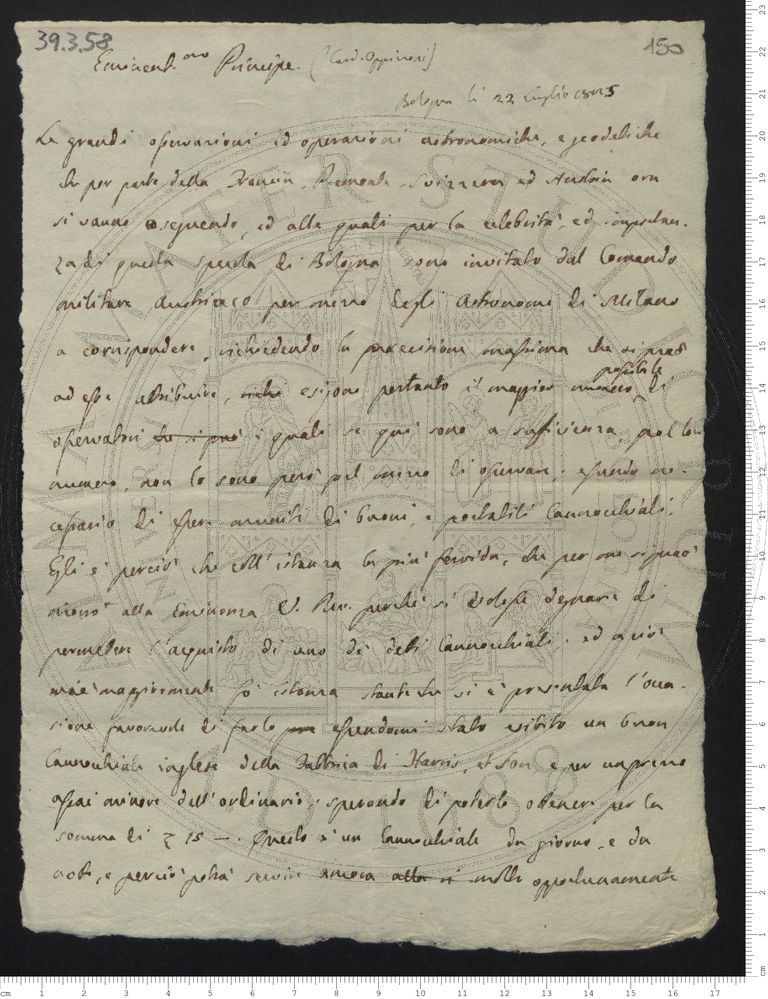 39.3.58
150
Eminent.mo Principe. (Card. Oppizzoni)
Bologna li 22 Luglio 1825
Le grandi osservazioni ed operazioni astronomiche, e geodetiche
che per parte della Francia, Piemonte, Svizzera ed Austria ora
si vanno eseguendo, ed alle quali per la celebrità, ed importan-
za di questa specola di Bologna sono invitato dal Comando
militare Austriaco per mezzo degli Astronomi di Milano
a corrispondere, richiedendo la precisione massima che si può
ad esse attribuire, esigono pertanto il maggior numero possibile di
osservatori che si può i quali se qui sono a sufficienza, pel loro
numero, non lo sono però pel mezzo di osservare, essendo ne-
cessario di essere muniti di buoni, e portatili Cannocchiali.
Egli è perciò che coll'istanza la più fervida, che per me si può
alla Eminenza V. Rev. perchè si volesse degnare di
permettere l'acquisto di uno de' detti Cannocchiali. ed a ciò
maggiormente fo istanza stante che si è presentata l'occa-
sione favorevole di farlo essendomi stato esibito un buon
Cannocchiale inglese della Fabbrica di Harris, et son e per un prezzo
assai minore dell'ordinario, sperando di poterlo ottenere per la
somma di z 15 —. Questo è un Cannocchiale da giorno, e da
notte, e perciò potrà servire ancora molto opportunamente